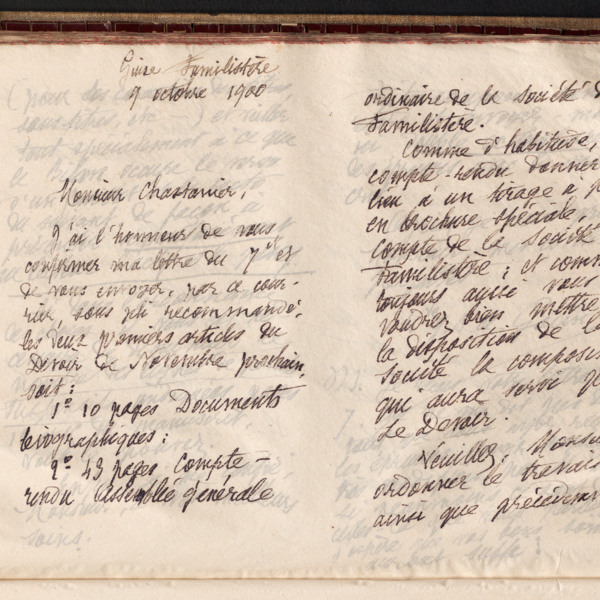 Guise Familistère
9 octobre 1900
Monsieur Chastanier,
J'ai l'honneur de vous
confirmer ma lettre du 7 et
de vous envoyer, par ce cour-
rier, sous pli recommandé,
les deux premiers articles du
Devoir de Novembre prochain,
soit :
1º 10 pages Documents
biographiques :
2º 43 pages Compte-
rendu Assemblée générale
ordinaire de la Société d
Familistère.
Comme d'habitude,
compte-rendu donner
lieu à un tirage à p
en brochure spéciale,
compte de la Société
Familistère ; et comm
toujours aussi vous
voudrez bien mettre
la disposition de la
Société la composi
qui aura servi p
Le Devoir.
Veuillez, Monsi
ordonner le travai
ainsi que précédemm